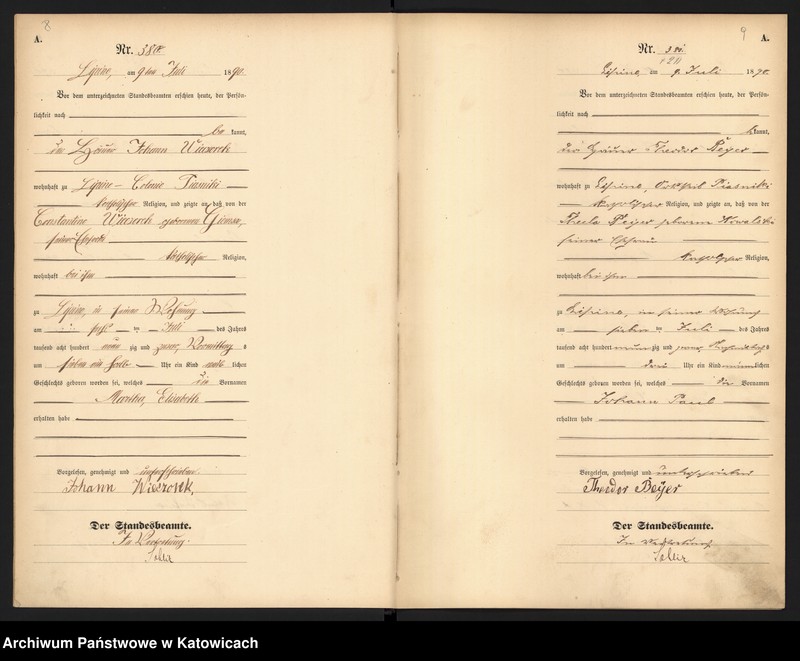 8
A.
Nr. 580.
Lipine, am 9ten Juli 1890.
Vor dem unterzeichneten Standesbeamten erschien heute, der Persön-
lichkeit nach
be kannt,
der Johann Wieczorek
wohnhaft zu Lipine - Colonie Piasniki
katholischer Religion, und zeigte an, daß von der
Constantine Wieczorek geborenen
seiner Ehefrau
katholischer Religion,
wohnhaft bei ihm
zu Lipine, in seiner Wohnung
am Juli des Jahres
tausend acht hundert neun zig und zwar, Vormittags
um sieben ein halb Uhr ein Kind weib lichen
Geschlechts geboren worden sei, welches die Vornamen
Martha, Elisabeth
erhalten habe
Vorgelesen, genehmigt und unterschrieben.
Johann Wieczorek,
Der Standesbeamte.
In Vertretung.
9
A.
Nr.
Lipine, am 9. Juli 1890.
Vor dem unterzeichneten Standesbeamten erschien heute, der Persön-
lichkeit nach
bekannt,
der Theodor Beÿer
wohnhaft zu Lipine, Piasniki
katholischer Religion, und zeigte an, daß von der
Thecla Beÿer geborenen Kowalski
seiner Ehefrau
katholischer Religion,
wohnhaft bei ihm
zu Lipine, in seiner Wohnung
am Juli des Jahres
tausend acht hundert neun zig und zwar
um drei Uhr ein Kind männlichen
Geschlechts geboren worden sei, welches die Vornamen
Johann Paul
erhalten habe
Vorgelesen, genehmigt und unterschrieben
Theodor Beÿer
Der Standesbeamte.
In Vertretung
Archiwum Państwowe w Katowicach